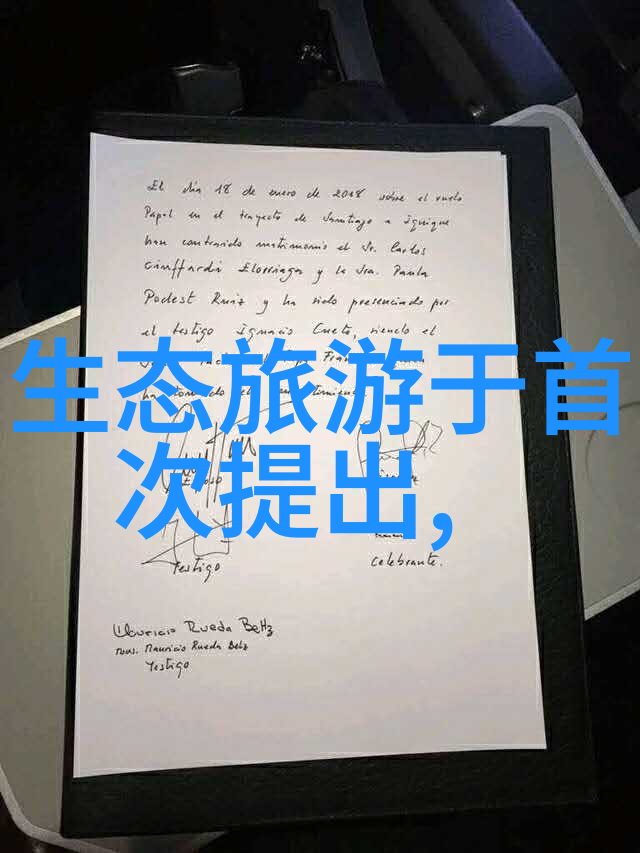 El día 18 de enero de 2018 sobre el vuelo
Papal en el trayecto de Santiago a Iquique
han contraido matrimonio el Sr. Carlos
Ciuffardi Elorriaga y la Sra. Paula
Podest Ruiz y ha sido presenciado por
el testigo Ignacio Cueto, siendo el
生态旅游于首
次提出，
Testigo
Celebrante.
Mauricio Rueda Beltz
Mons. Mauricio Rueda Beltz
Testigo